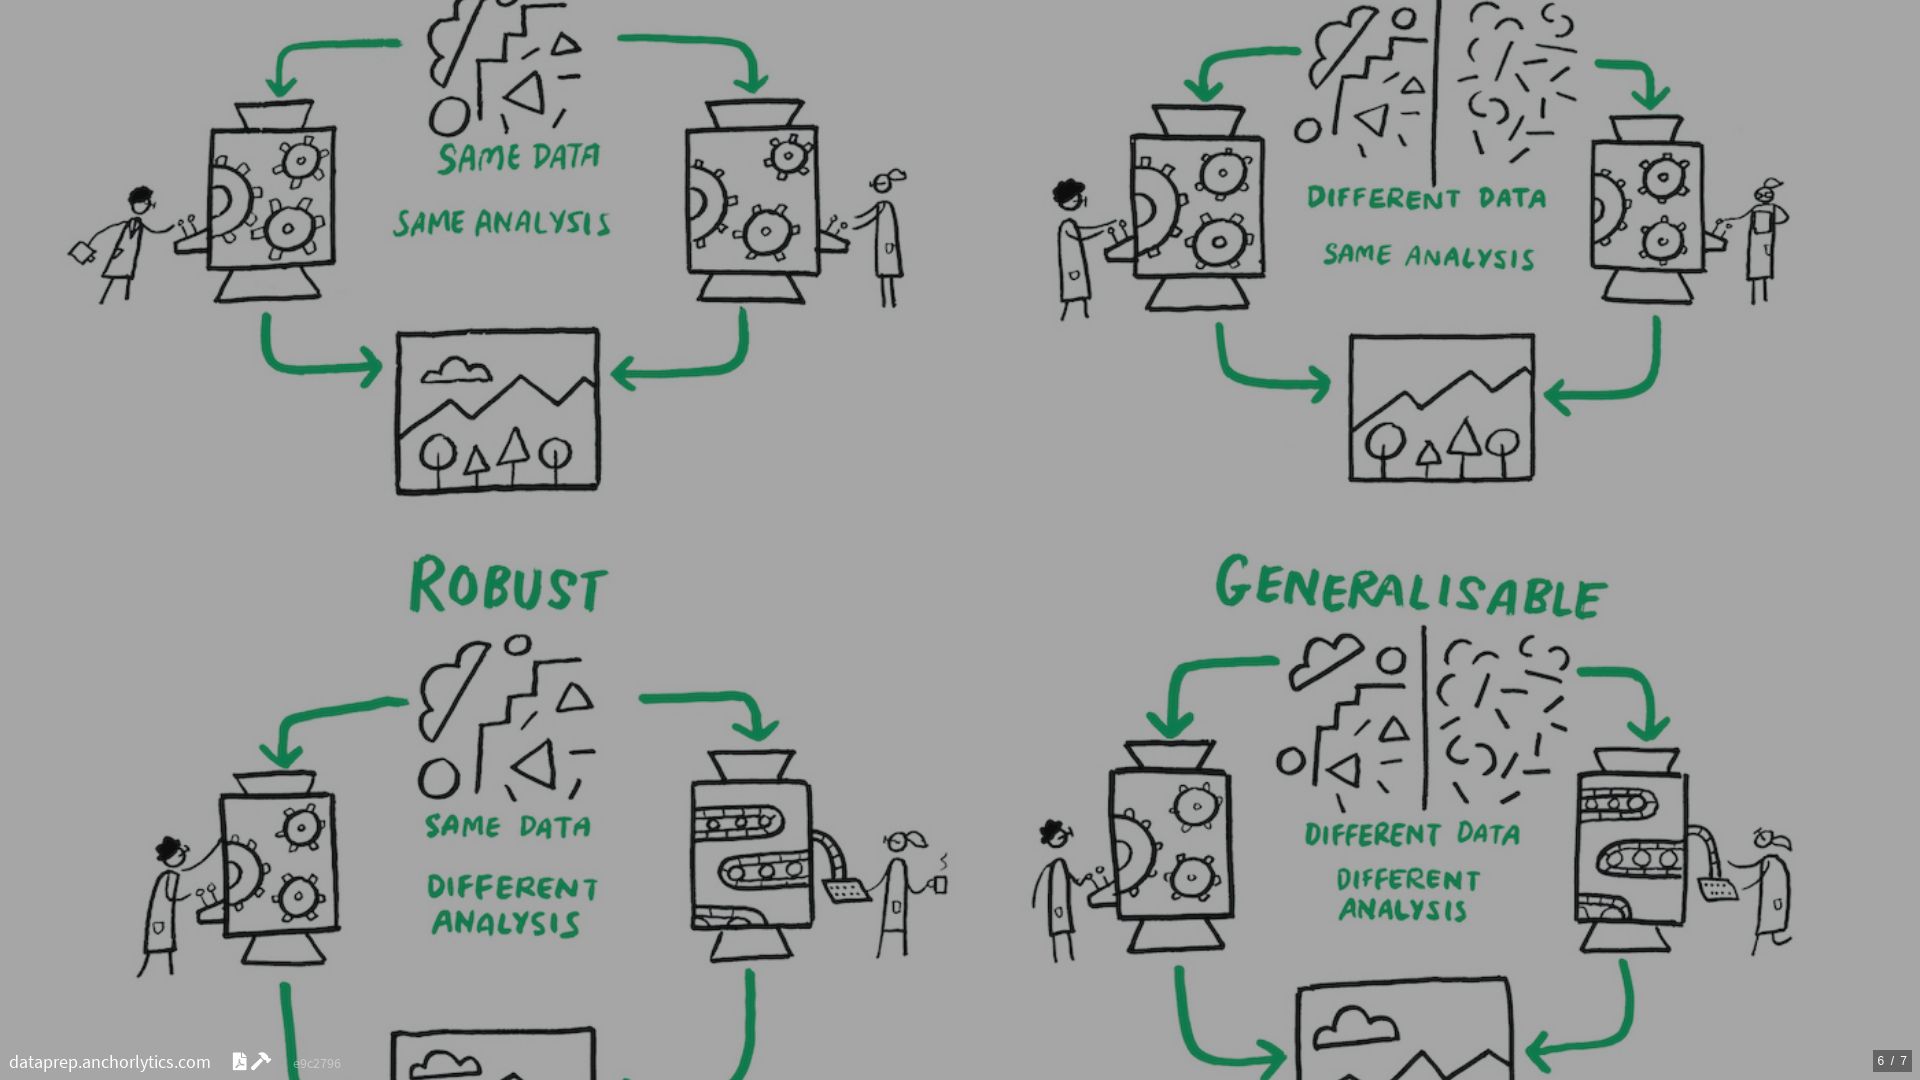 SAME DATA
SAME ANALYSIS
DIFFERENT DATA
SAME ANALYSIS
ROBUST
SAME DATA
DIFFERENT
ANALYSIS
GENERALISABLE
DIFFERENT DATA
DIFFERENT
ANALYSIS
dataprep.anchorlytics.com
e9c2796
6 / 7